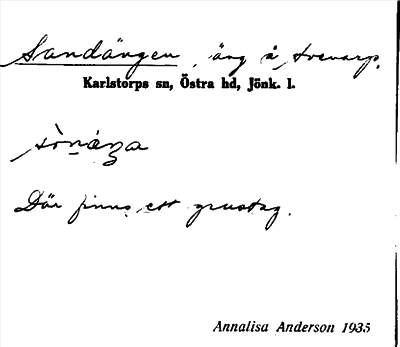 Sandängen, äng å Svenarp.
Karlstorps sn, Östra hd, Jönk. l.
Där finns ett grustag.
Annalisa Anderson 1935